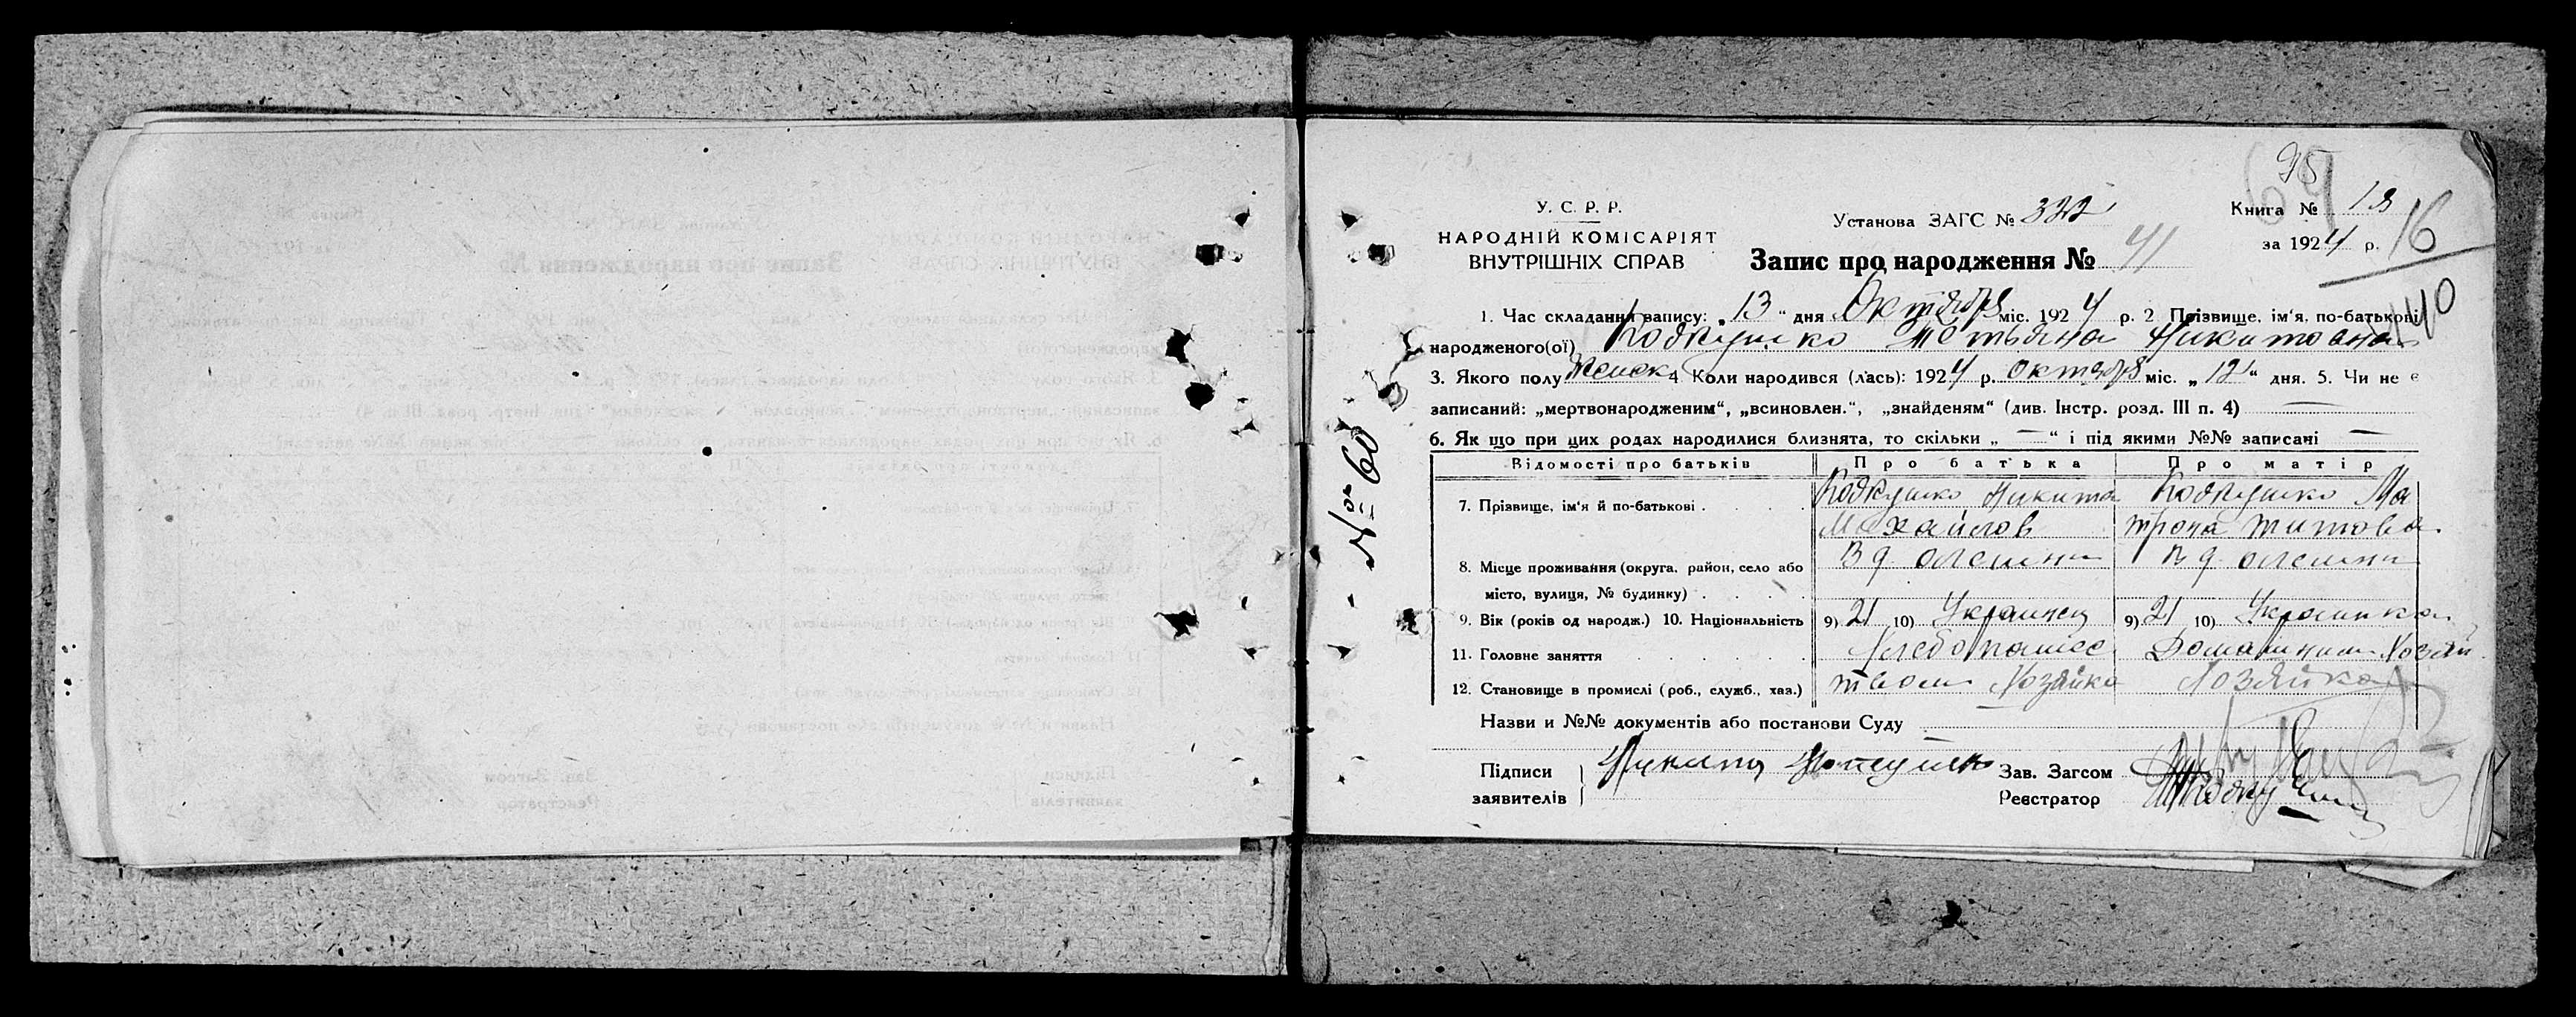 95
69
У. С. Р. Р.
НАРОДНІЙ КОМІСАРІЯТ
ВНУТРІШНІХ СПРАВ
Установа ЗАГС № 332
Запис про народження № 41
Книга № 18
за 1924 р.
16
440
1. Час складання запису: „13“ дня Октября міс. 1924 р. 2 Прізвище, ім'я, по-батькові
народженого(ої) Кодкушко Татьяна Никитовна
3. Якого полу Женск. 4 Коли народився (лась): 1924 р. октября міс. „12“ дня. 5. Чи не є
записаний: „мертвонародженим“, „всиновлен.“, „знайденям“ (див. Інстр. розд. III п. 4) —
6. Як що при цих родах народилися близнята, то скільки „—“ і під якими №№ записані —
№ 60
Відомості про батьків Про батька Про матір
7. Прізвище, ім'я й по-батькові Кодкушко Никита Кодкушко Ма
Михайлов трона титова
8. Місце проживання (округа, район, село або В д. олешни В д. олешни
місто, вулиця, № будинку)
9. Вік (років од народж.) 10. Національність 9) 21 10) Украинец 9) 21 10) Украинка
11. Головне заняття Хлебопашес Домашним Хозяй
12. Становище в промислі (роб., служб., хаз.) твом Хозяйка Хозяйка
Назви и №№ документів або постанови Суду
Підписи
заявителів
Никита
Зав. Загсом
Реєстратор